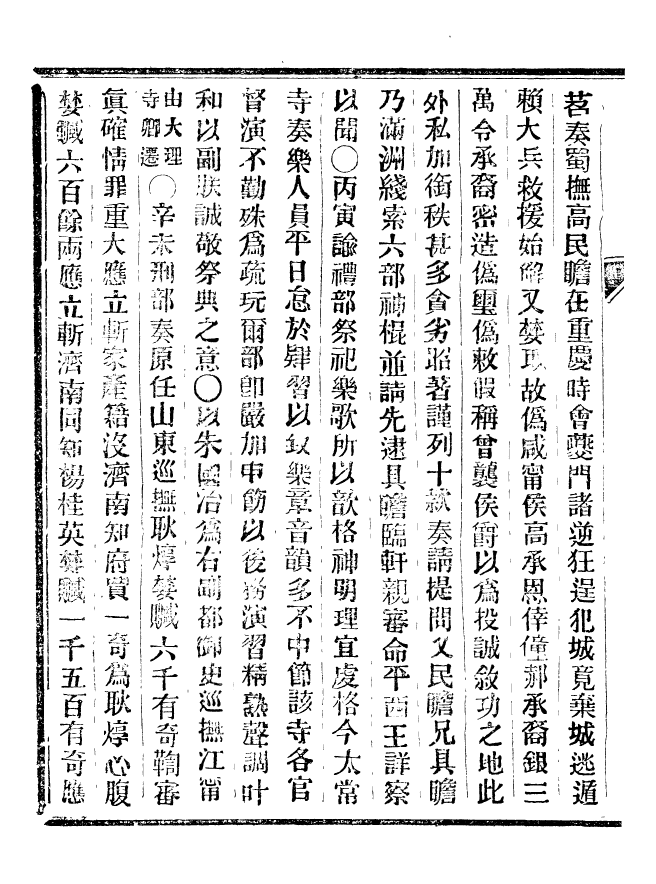 茗奏蜀撫高民瞻在重慶時會夔門諸逆狂逞犯城竟棄城逃遁
賴大兵救援始解又婪取故僞咸甯侯高承恩倖僮郝承裔銀三
萬令承裔密造僞璽僞敕假稱曾襲侯爵以爲投誠敘功之地此
外私加銜秩甚多貪劣昭著謹列十款奏請提問又民瞻兄具瞻
乃滿洲綫索六部神棍並請先逮具瞻臨軒親審命平西王詳察
以聞〇丙寅諭禮部祭祀樂歌所以歆格神明理宜虔恪今太常
寺奏樂人員平日怠於肄習以致樂章音韻多不中節該寺各官
督演不勤殊爲疏玩爾部卽嚴加申飭以後務演習精熟聲調叶
和以副朕誠敬祭典之意〇以朱國治爲右副都御史巡撫江甯
由大理寺卿遷〇辛未刑部奏原任山東巡撫耿焞婪贓六千有奇鞫審
眞確情罪重大應立斬家產籍沒濟南知府賈一奇爲耿焞心腹
婪贓六百餘兩應立斬濟南同知楊桂英婪贓一千五百有奇應